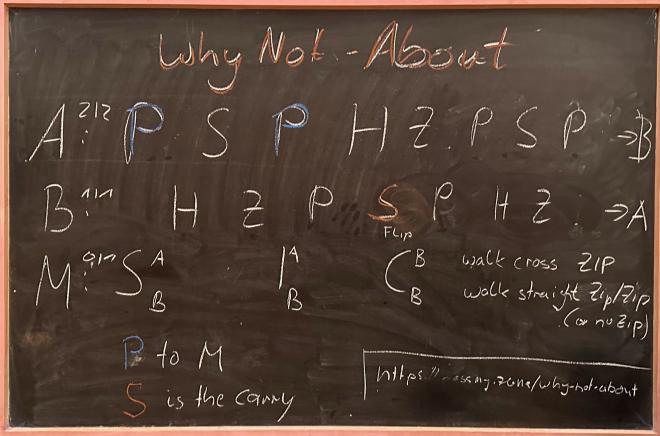 Why Not - About
A 2|2 : P S P H Z P S P → B
B 1|1 : H Z P S P H Z → A
Flip
M 0|1 : S A B | A B C B B walk cross ZIP
walk straight Zip/Zip
(or no Zip)
P to M
S is the carry
https:// zone/why-not-about